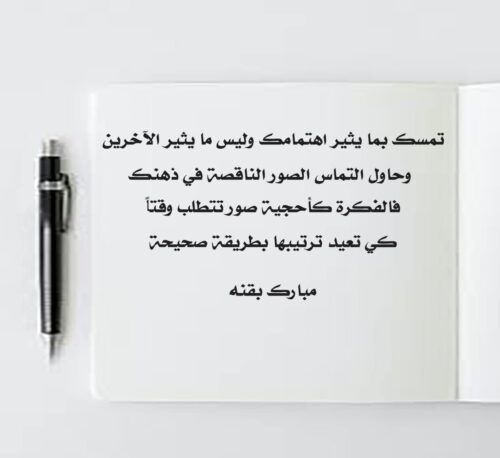 تمسك بما يثير اهتمامك وليس ما يثير الآخرين
وحاول التماس الصور الناقصة في ذهنك
فالفكرة كأحجية صور تتطلب وقتاً
كي تعيد ترتيبها بطريقة صحيحة
مبارك بقنه